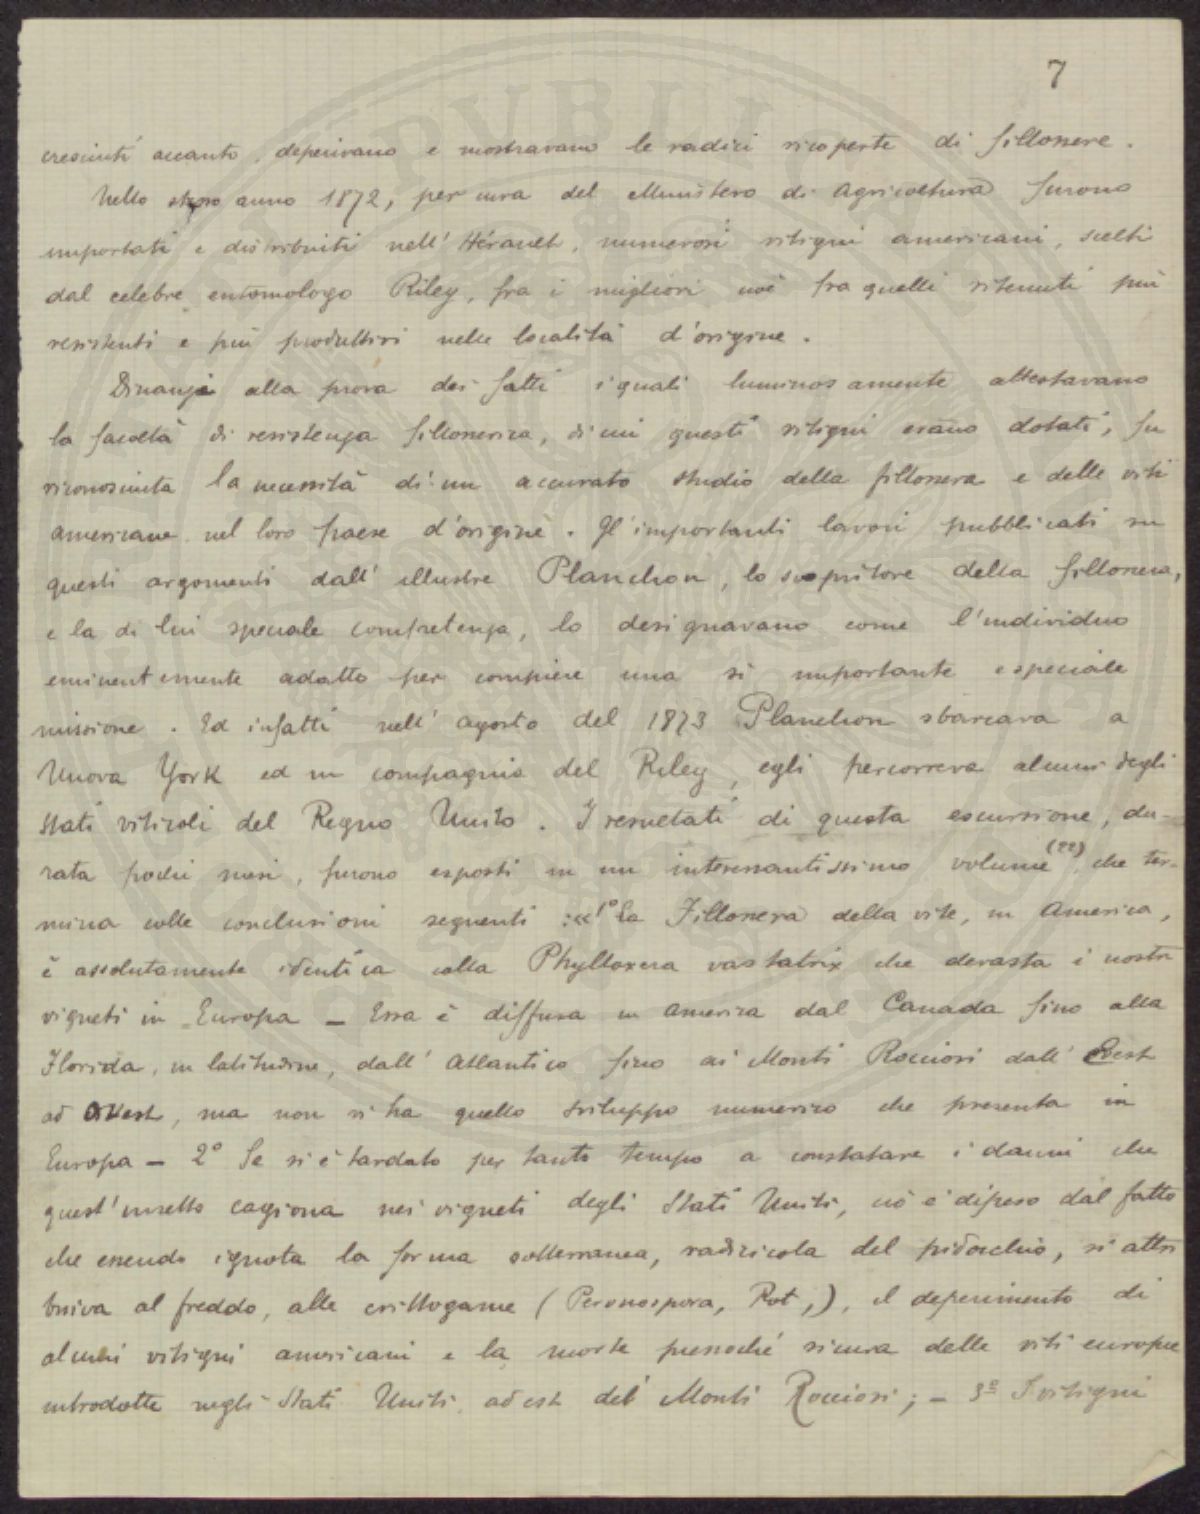 7
cresciuti accanto, deperivano e mostravano le radici ricoperte di fillossere.
Nello stesso anno 1872, per cura del Ministero di Agricoltura furono
importati e distribuiti nell' Hérault, numerosi vitigni americani, scelti
dal celebre entomologo Riley, fra i migliori cioè fra quelli ritenuti più
resistenti e più produttivi nelle località d'origine.
Dinanzi alla prova dei fatti i quali luminosamente attestavano
la facoltà di resistenza fillosserica, di cui questi vitigni erano dotati, fu
riconosciuta la necessità di un accurato studio della fillossera e delle viti
americane nel loro paese d'origine. Gl'importanti lavori pubblicati su
questi argomenti dall' illustre Planchon, lo scopritore della fillossera,
e la di lui speciale competenza, lo designavano come l'individuo
eminentemente adatto per compiere una sì importante e speciale
missione. Ed infatti nell' agosto del 1873 Planchon sbarcava a
Nuova York ed in compagnia del Riley, egli percorreva alcuni degli
Stati viticoli del Regno Unito. I resultati di questa escursione, du-
rata pochi mesi, furono esposti in un interessantissimo volume (22) che ter-
mina colle conclusioni seguenti :«1° La Fillossera della vite, in America,
è assolutamente identica colla Phylloxera vastatrix che devasta i nostri
vigneti in Europa - Essa è diffusa in America dal Canada fino alla
Florida, in latitudine, dall' Atlantico fino ai Monti Rocciosi dall' Est
ad Ovest, ma non si ha quello sviluppo numerico che presenta in
Europa - 2° Se si è tardato per tanto tempo a constatare i danni che
quest'insetto cagiona nei vigneti degli Stati Uniti, ciò è dipeso dal fatto
che essendo ignota la forma sotterranea, radicicola del pidocchio, si attri
buiva al freddo, alle crittogame (Peronospora, Rot,), il deperimento di
alcuni vitigni americani e la morte pressoché sicura delle viti europee
introdotte negli Stati Uniti, ad est dei Monti Rocciosi; - 3° I vitigni